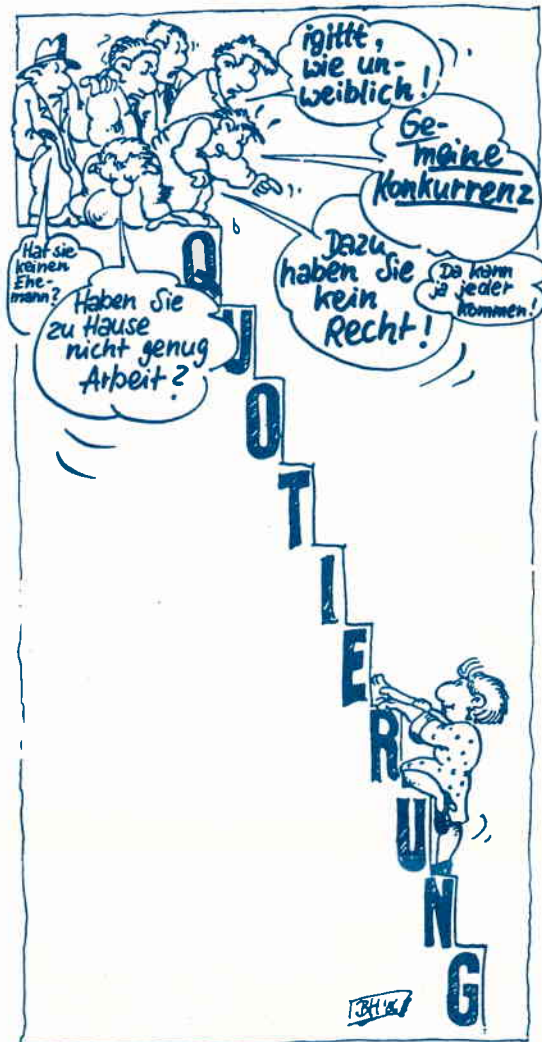 igittt,
wie un-
weiblich!
Ge-
meine
Konkurrenz
Hat sie
keinen
Ehe-
mann?
Haben Sie
zu Hause
nicht genug
Arbeit?
Dazu
haben Sie
kein
Recht!
Da kann
ja jeder
kommen!
QUOTIERUNG
BH '86